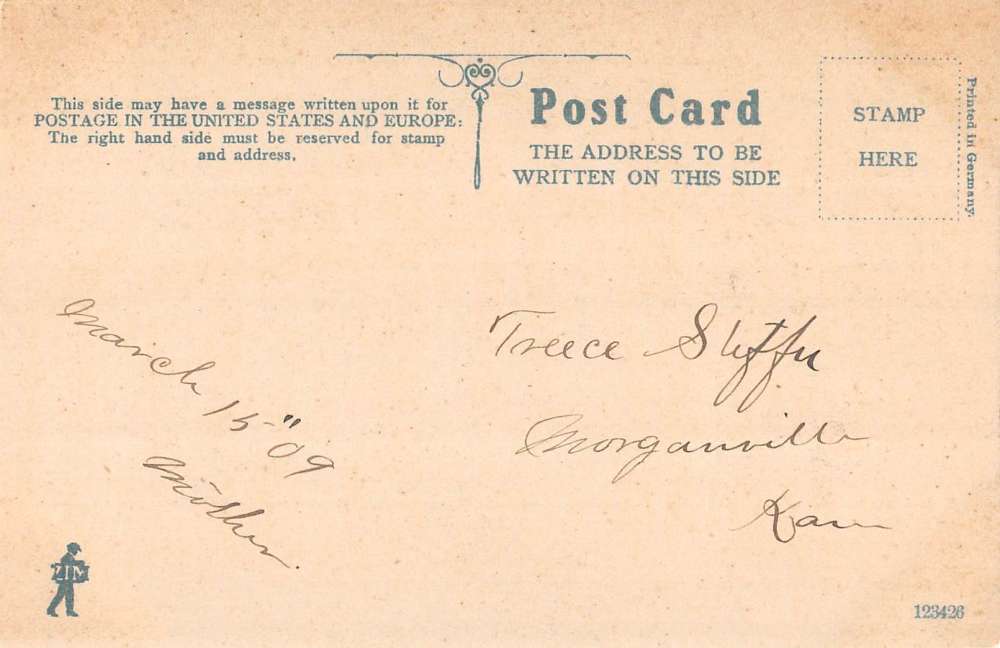 This side may have a message written upon it for
POSTAGE IN THE UNITED STATES AND EUROPE:
The right hand side must be reserved for stamp
and address.
Post Card
THE ADDRESS TO BE
WRITTEN ON THIS SIDE
STAMP
HERE
Printed in Germany.
March 15" 09
Mother.
Treece
Morganville
Kan
ZIM
123426